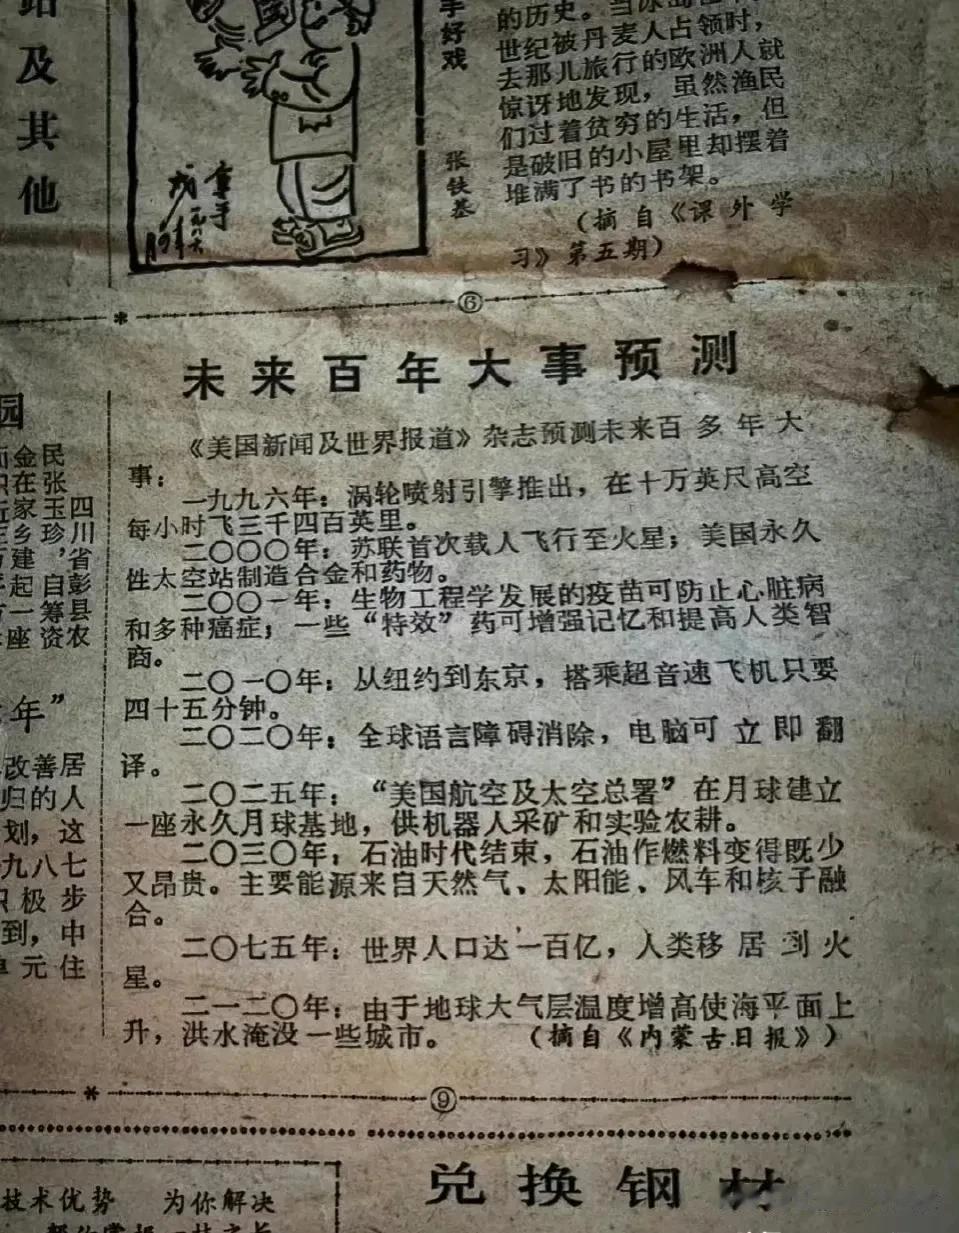 及其他
好戏
张铁基
的历史。当冰岛在
世纪被丹麦人占领时，
去那儿旅行的欧洲人就
惊讶地发现，虽然渔民
们过着贫穷的生活，但
是破旧的小屋里却摆着
堆满了书的书架。
（摘自《课外学
习》第五期）
⑥
未来百年大事预测
《美国新闻及世界报道》杂志预测未来百多年大
事：
一九九六年：涡轮喷射引擎推出，在十万英尺高空
每小时飞三千四百英里。
二〇〇〇年：苏联首次载人飞行至火星；美国永久
性太空站制造合金和药物。
二〇〇一年：生物工程学发展的疫苗可防止心脏病
和多种癌症；一些“特效”药可增强记忆和提高人类智
商。
二〇一〇年：从纽约到东京，搭乘超音速飞机只要
四十五分钟。
二〇二〇年：全球语言障碍消除，电脑可立即翻
译。
二〇二五年：“美国航空及太空总署”在月球建立
一座永久月球基地，供机器人采矿和实验农耕。
二〇三〇年：石油时代结束，石油作燃料变得既少
又昂贵。主要能源来自天然气、太阳能、风车和核子融
合。
二〇七五年：世界人口达一百亿，人类移居到火
星。
二一二〇年：由于地球大气层温度增高使海平面上
升，洪水淹没一些城市。（摘自《内蒙古日报》）
⑨
园
四川省彭县农
民张玉珍，自筹资
金在家乡建起一座
年”
改善居
归的人
划，这
九八七
积极步
到，中
单元住
兑换钢材
技术优势 为你解决